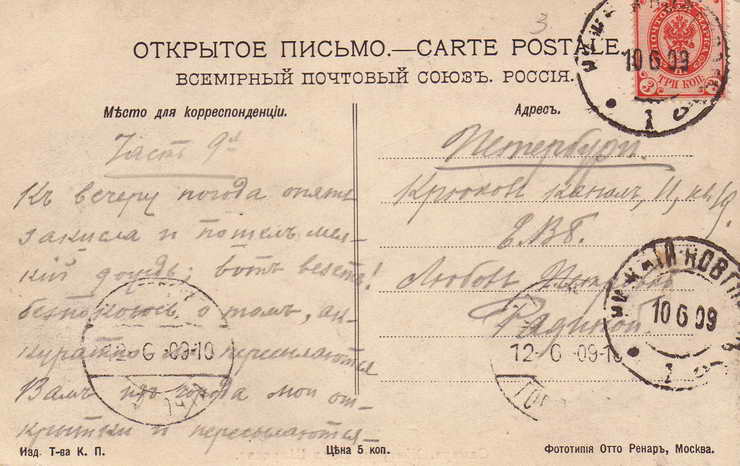 3.
ПОЧТОВАЯ МАРКА
ТРИ КОП.
3
10 6 09
1
ОТКРЫТОЕ ПИСЬМО.—CARTE POSTALE
ВСЕМІРНЫЙ ПОЧТОВЫЙ СОЮЗЪ. РОССІЯ.
Мѣсто для корреспонденціи.
Часть 9ая
Къ вечеру погода опять
закисла и пошелъ мел-
кій дождь; вотъ везетъ!
безпокоюсь о томъ, ак-
куратно ли пересылаются
Вамъ изъ города мои от-
крытки и пересылаются-
12 6 09-10
Адресъ.
Петербургъ.
Крюковъ каналъ, 11, кв.
Е.В.Б.
Любовь
Радиной
НИЖНІЙ-НОВГ
10 6 09
1
12 6 09-10
Изд. Т-ва К. П.
Цѣна 5 коп.
Фототипія Отто Ренаръ, Москва.